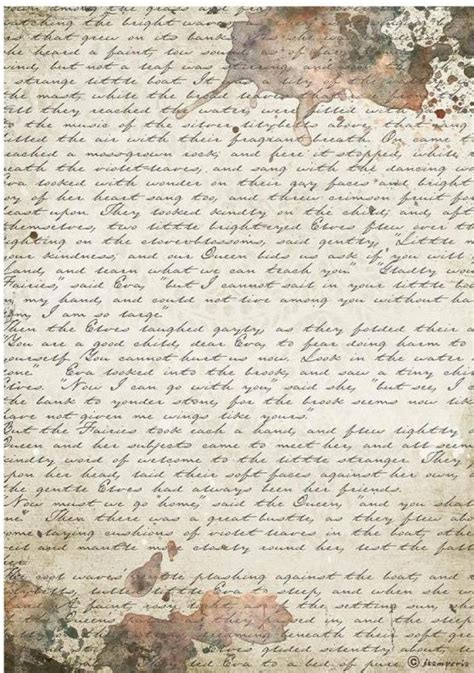 among the grass
watching the bright waves
rs that grew on its bank
she heard a faint, low sound, as of far
wind, but not a leaf was stirring, and
strange little boat. It
the mast, white the broad
till they reached the water, were filled with
to the music of the silver lilybells above, that
illed the air with their fragrant breath. On came
eached a mossgrown rock; and here it stopped, while
neath the violet-leaves, and sang with the dancing wa
va looked with wonder on their gay faces and bright
oy of her heart sang too, and threw crimson fruit for
east upon. They looked kindly on the child, and, after
hemselves, two little bright-eyed Elves flew over th
ighting on the cloverblossoms, said gently, "Little
our kindness, and our Queen bids us ask if you will
Land, and learn what we can teach you." "Gladly wo
Fairies," said Eva, "but I cannot sail in your little bo
n my hand, and could not live among you without ha
or I am so large."
hen the Elves laughed gayly, as they folded their
You are a good child, dear Eva, to fear doing harm to
yourself. You cannot hurt us now. Look in the water
one." Eva looked into the brook, and saw a tiny chi
lves. "Now I can go with you," said she, "but see, I
he bank to yonder stone, for the brook seems now lik
have not given me wings like yours."
But the Fairies took each a hand, and flew lightly
Queen and her subjects came to meet her, and all seem
indly word of welcome to the little stranger. They
pon her head, laid their soft faces against her own,
the gentle Elves had always been her friends.
Now must we go home," said the Queen, "and you sha
ne." Then there was a great bustle, as they flew abo
ome laying cushions of violet leaves in the boat, other
eil and mantle more closely round her, lest the falli
er.
he cool waves' gentle plashing against the boat, and
lybells, lulled little Eva to sleep, and when she
a faint, rosy light, as of the setting sun,
gleaming beneath their soft gl
silently led Eva to a bed of pure
© stamperia